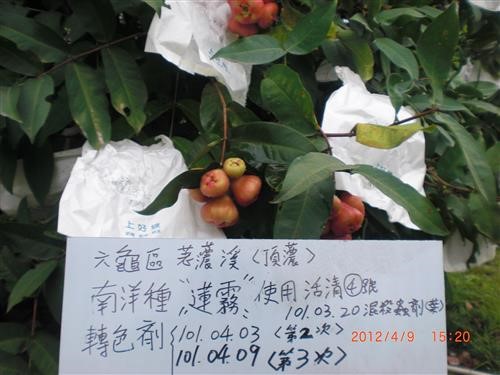 上好
六龜區 荖濃溪〈頂濃〉
南洋種"蓮霧"使用活清④號
101.03.20 混殺蟲劑(葉)
轉色劑 101.04.03〈第2次〉
101.04.09〈第3次〉
2012/4/9 15:20